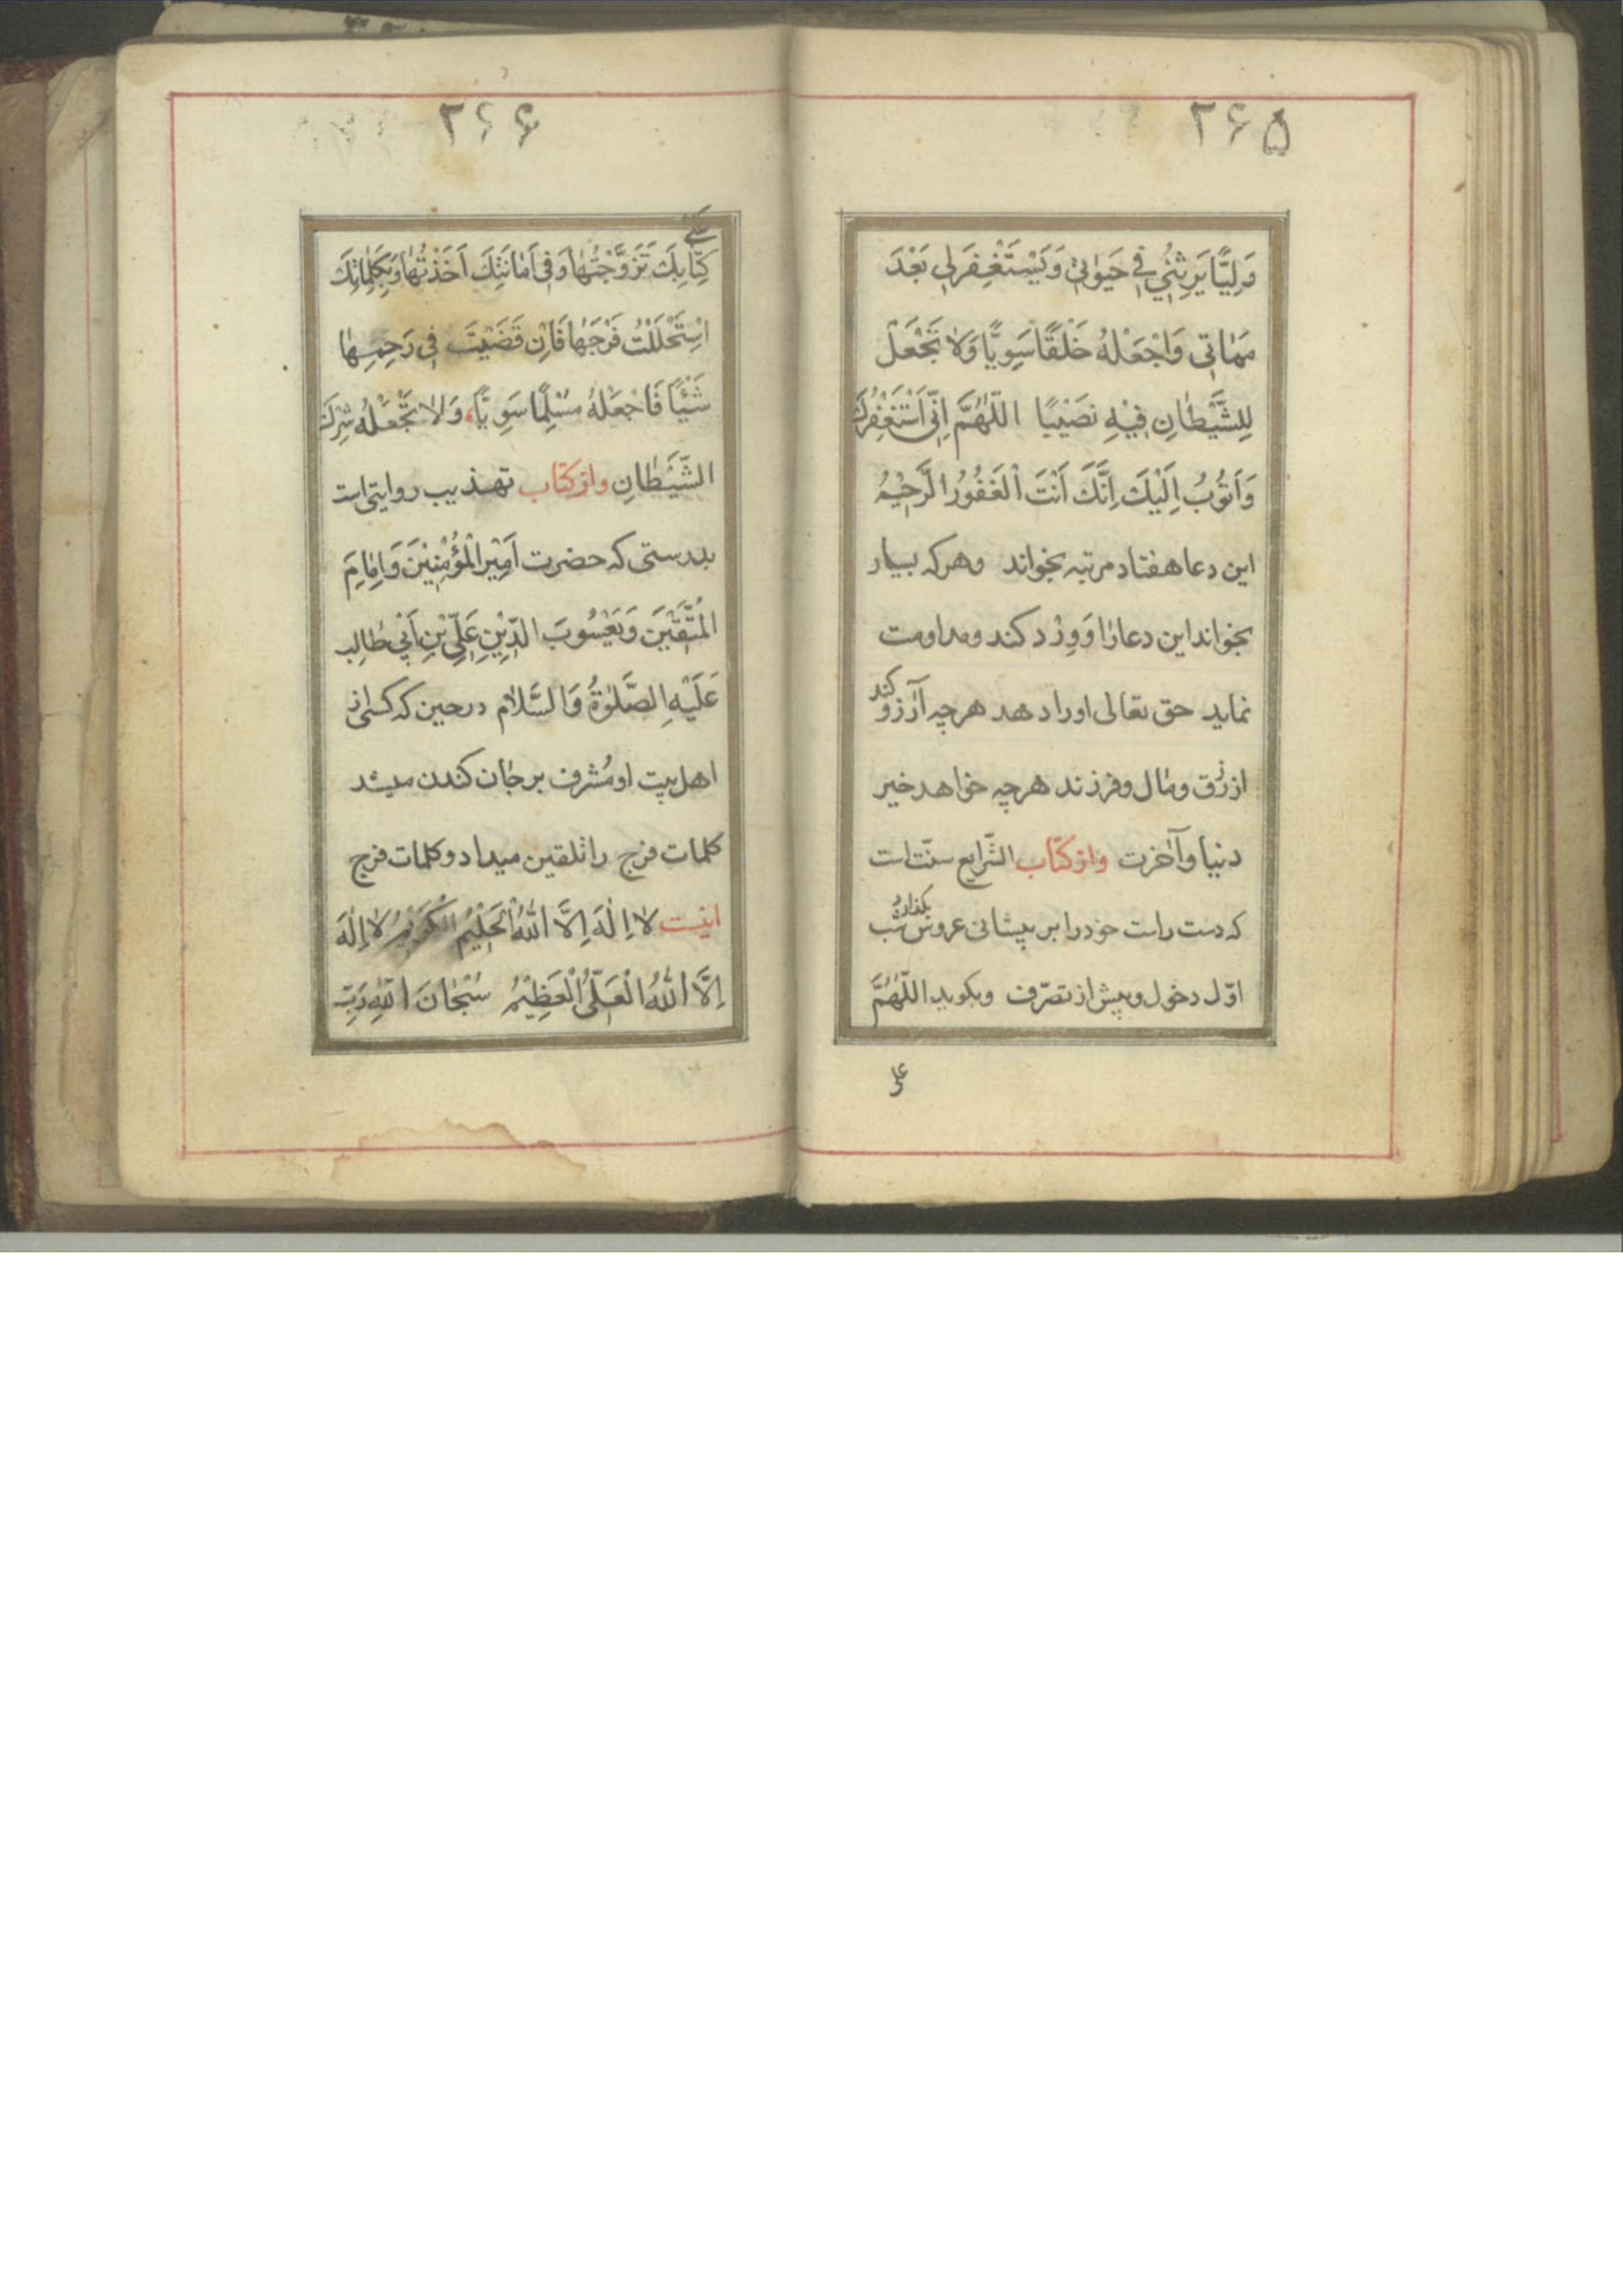 ۲۶۵
وَلِيًّا يَرِثُنِي فِي حَيٰوتِي وَيَسْتَغْفِرَ لِي بَعْدَ
مَمَاتِي وَاجْعَلْهُ خَلْقًا سَوِيًّا وَلَا تَجْعَلْ
لِلشَّيْطَانِ فِيْهِ نَصِيْبًا اللّٰهُمَّ اِنِّي اَسْتَغْفِرُكَ
وَاَتُوبُ اِلَيْكَ اِنَّكَ اَنْتَ الْغَفُورُ الرَّحِيْمُ
این دعا هفتاد مرتبه بخواند وهرکه بسیار
بخواند این دعا را وَوِرْد کند ومداومت
نماید حق تعالی اورا دهد هرچه آرزو کند
از رزق ومال وفرزند هرچه خواهد خیر
دنیا وآخرت واز کتاب الشّرایع سنّت است
که دست راست خودرا بر پیشانی عروس بگذارد شب
اوّل دخول وپیش از تصرّف وبگوید اللّٰهُمَّ
علی
۲۶۶
كِتَابِكَ تَزَوَّجْتُهَا وَفِي اَمَانَتِكَ اَخَذْتُهَا وَبِكَلِمَاتِكَ
اسْتَحْلَلْتُ فَرْجَهَا فَاِنْ قَضَيْتَ فِي رَحِمِهَا
شَيْئًا فَاجْعَلْهُ مُسْلِمًا سَوِيًّا، وَلَا تَجْعَلْهُ شِرْكَ
الشَّيْطَانِ واز کتاب تهذیب روایتی است
بدرستی که حضرت اَمِيْرِ الْمُؤْمِنِيْنَ وَاِمَامَ
الْمُتَّقِيْنَ وَيَعْسُوبَ الدِّيْنِ عَلِيِّ بْنِ اَبِي طَالِب
عَلَيْهِ الصَّلٰوةُ وَالسَّلَام درحین که کسی از
اهل بیت او مُشرف بر جان کندن میشد
کلمات فرج را تلقین میداد وکلمات فرج
اینست لَا اِلٰهَ اِلَّا اللّٰهُ الْحَلِيْمُ الْكَرِيْمُ لَا اِلٰهَ
اِلَّا اللّٰهُ الْعَلِيُّ الْعَظِيْمُ سُبْحَانَ اللّٰهِ رَبِّ